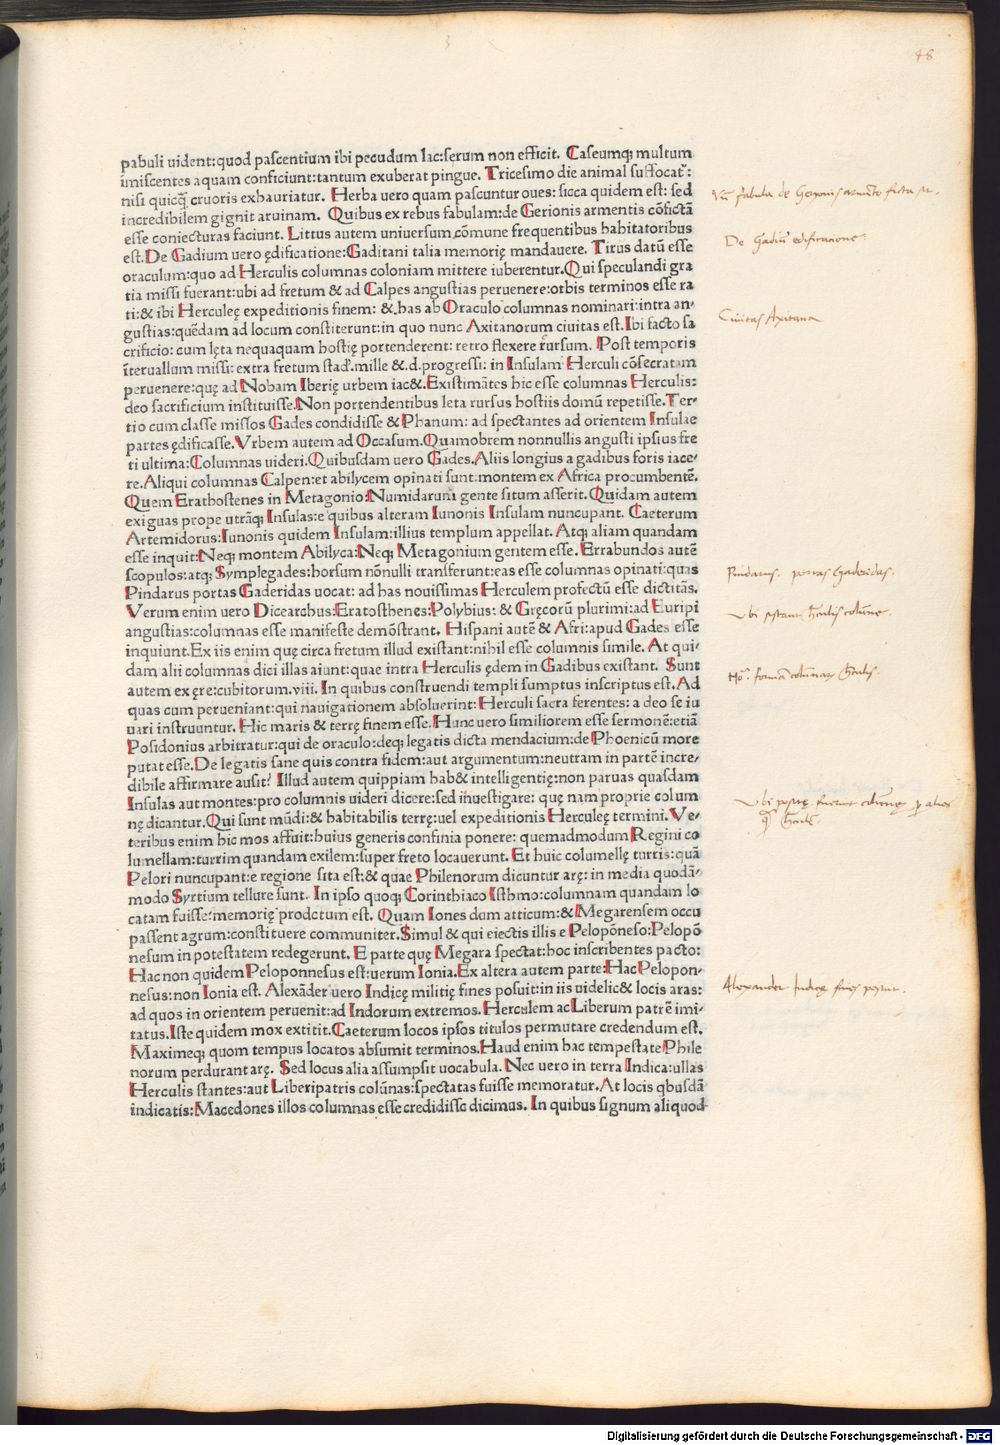 48
pabuli uident:quod pascentium ibi pecudum lac:serum non efficit. Caseumq; multum
īmiscentes aquam conficiunt:tantum exuberat pingue. Tricesimo die animal suffocat᷑:
nisi quicq̄ cruoris exhauriatur. Herba uero quam pascuntur oues: sicca quidem est: sed
incredibilem gignit aruinam. Quibus ex rebus fabulam:de Gerionis armentis cōfictā
esse coniecturas faciunt. Littus autem uniuersum cōmune frequentibus habitatoribus
est. De Gadium uero ędificatione:Gaditani talia memorię mandauere. Tirus datū esse
oraculum:quo ad Herculis columnas coloniam mittere iuberentur. Qui speculandi gra
tia missi fuerant:ubi ad fretum & ad Calpes angustias peruenere:orbis terminos esse ra
ti:& ibi Herculeę expeditionis finem: & has ab Oraculo columnas nominari:intra an-
gustias:quēdam ad locum constiterunt:in quo nunc Axitanorum ciuitas est. Ibi facto sa
crificio: cum lęta nequaquam hostię portenderent: retro flexere rursum. Post temporis
īteruallum missi: extra fretum stad̕. mille &.d. progressi: in Insulam Herculi cōsecratam
peruenere:quę ad Nobam Iberię urbem iac&. Existimātes hic esse columnas Herculis:
deo sacrificium instituisse. Non portendentibus leta rursus hostiis domū repetisse. Ter-
tio cum classe missos Gades condidisse & Phanum: ad spectantes ad orientem Insulae
partes ędificasse. Vrbem autem ad Occasum. Quamobrem nonnullis angusti ipsius fre
ti ultima:Columnas uideri. Quibusdam uero Gades. Aliis longius a gadibus foris iace-
re. Aliqui columnas Calpen:et abilycem opinati sunt:montem ex Africa procumbentē.
Quem Erathostenes in Metagonio:Numidarum gente situm asserit. Quidam autem
exiguas prope utrāq; Insulas:e quibus alteram Iunonis Insulam nuncupant. Caeterum
Artemidorus:Iunonis quidem Insulam:illius templum appellat. Atq; aliam quandam
esse inquit:Neq; montem Abilyca:Neq; Metagonium gentem esse. Errabundos autē
scopulos:atq; Symplegades:horsum nōnulli transferunt:eas esse columnas opinati:quas
Pindarus portas Gaderidas uocat: ad has nouissimas Herculem profectū esse dictitās.
Verum enim uero Dicearchus:Eratosthenes:Polybius: & Gręcorū plurimi:ad Euripi
angustias:columnas esse manifeste demōstrant. Hispani autē & Afri:apud Gades esse
inquiunt. Ex iis enim quę circa fretum illud existant:nihil esse columnis simile. At qui-
dam alii columnas dici illas aiunt:quae intra Herculis ędem in Gadibus existant. Sunt
autem ex ęre:cubitorum.viii. In quibus construendi templi sumptus inscriptus est. Ad
quas cum perueniant:qui nauigationem absoluerint: Herculi sacra ferentes: a deo se iu
uari instruuntur. Hic maris & terrę finem esse. Hunc uero similiorem esse sermonē:etiā
Posidonius arbitratur:qui de oraculo:deq; legatis dicta mendacium:de Phoenicū more
putat esse. De legatis sane quis contra fidem:aut argumentum:neutram in partē incre-
dibile affirmare ausit? Illud autem quippiam hab& intelligentię:non paruas quasdam
Insulas aut montes:pro columnis uideri dicere:sed inuestigare: quę nam proprie colum
nę dicantur. Qui sunt mūdi:& habitabilis terrę:uel expeditionis Herculeę termini. Ve-
teribus enim hic mos affuit:huius generis confinia ponere: quemadmodum Regini co
lumellam:turrim quandam exilem:super freto locauerunt. Et huic columellę turris:quā
Pelori nuncupant:e regione sita est:& quae Philenorum dicuntur arę: in media quodā-
modo Syrtium tellure sunt. In ipso quoq; Corinthiaco Isthmo:columnam quandam lo
catam fuisse:memorię prodctum est. Quam Iones dum atticum:& Megarensem occu
passent agrum:constituere communiter. Simul & qui eiectis illis e Pelopōneso:Pelopō
nesum in potestatem redegerunt. E parte quę Megara spectat:hoc inscribentes pacto:
Hac non quidem Peloponnesus est:uerum Ionia. Ex altera autem parte:Hac Pelopon-
nesus:non Ionia est. Alexāder uero Indicę militię fines posuit:in iis uidelic& locis aras:
ad quos in orientem peruenit:ad Indorum extremos. Herculem ac Liberum patrē imi-
tatus. Iste quidem mox extitit. Caeterum locos ipsos titulos permutare credendum est.
Maximeq; quom tempus locatos absumit terminos. Haud enim hac tempestate Phile
norum perdurant arę. Sed locus alia assumpsit uocabula. Nec uero in terra Indica:ullas
Herculis stantes:aut Liberipatris colūnas:spectatas fuisse memoratur. At locis qbusdā
indicatis:Macedones illos columnas esse credidisse dicimus. In quibus signum aliquod
fabula de Gerionis armento ficta
De Gadiū edificatione
Ciuitas Axitana
Pindarus. portas Gaderidas.
Vbi extant Herculis colūnę.
forma columnarum Herculis.
Vbi positę fuerunt colūnę
Alexander Indicę fines posuit.
Digitalisierung gefördert durch die Deutsche Forschungsgemeinschaft - DFG